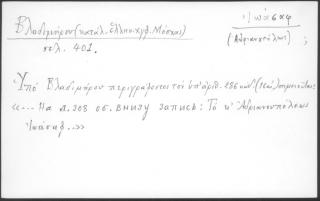 Βλαδιμήρου (κατάλ. ἑλλην. χφ. Μόσχας)
σελ. 401.
Ἰωάσαφ
(Ἀδριανουπόλεως)
;
Ὑπὸ Βλαδιμήρου περιγράφονται τοῦ ὑπ' ἀριθ. 286 κωδ.
«... На л. 308 об. внизу запись: Τὸ υ' Ἀδριανουπόλεως
Ἰωάσαφ..»